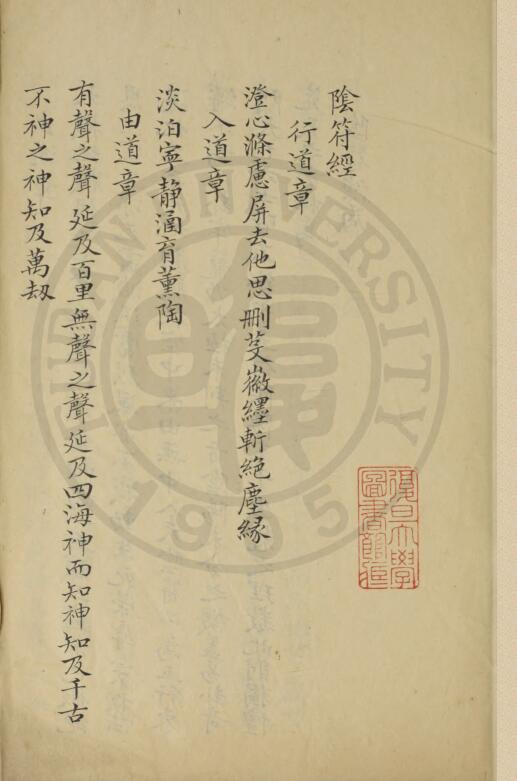 陰符經
行道章
澄心滌慮屏去他思刪芟徽纆斬絕塵緣
入道章
淡泊寧靜涵育薰陶
由道章
有聲之聲延及百里無聲之聲延及四海神而知神知及千古
不神之神知及萬刼
復旦大學
圖書館藏
FUDAN UNIVERSITY
1905